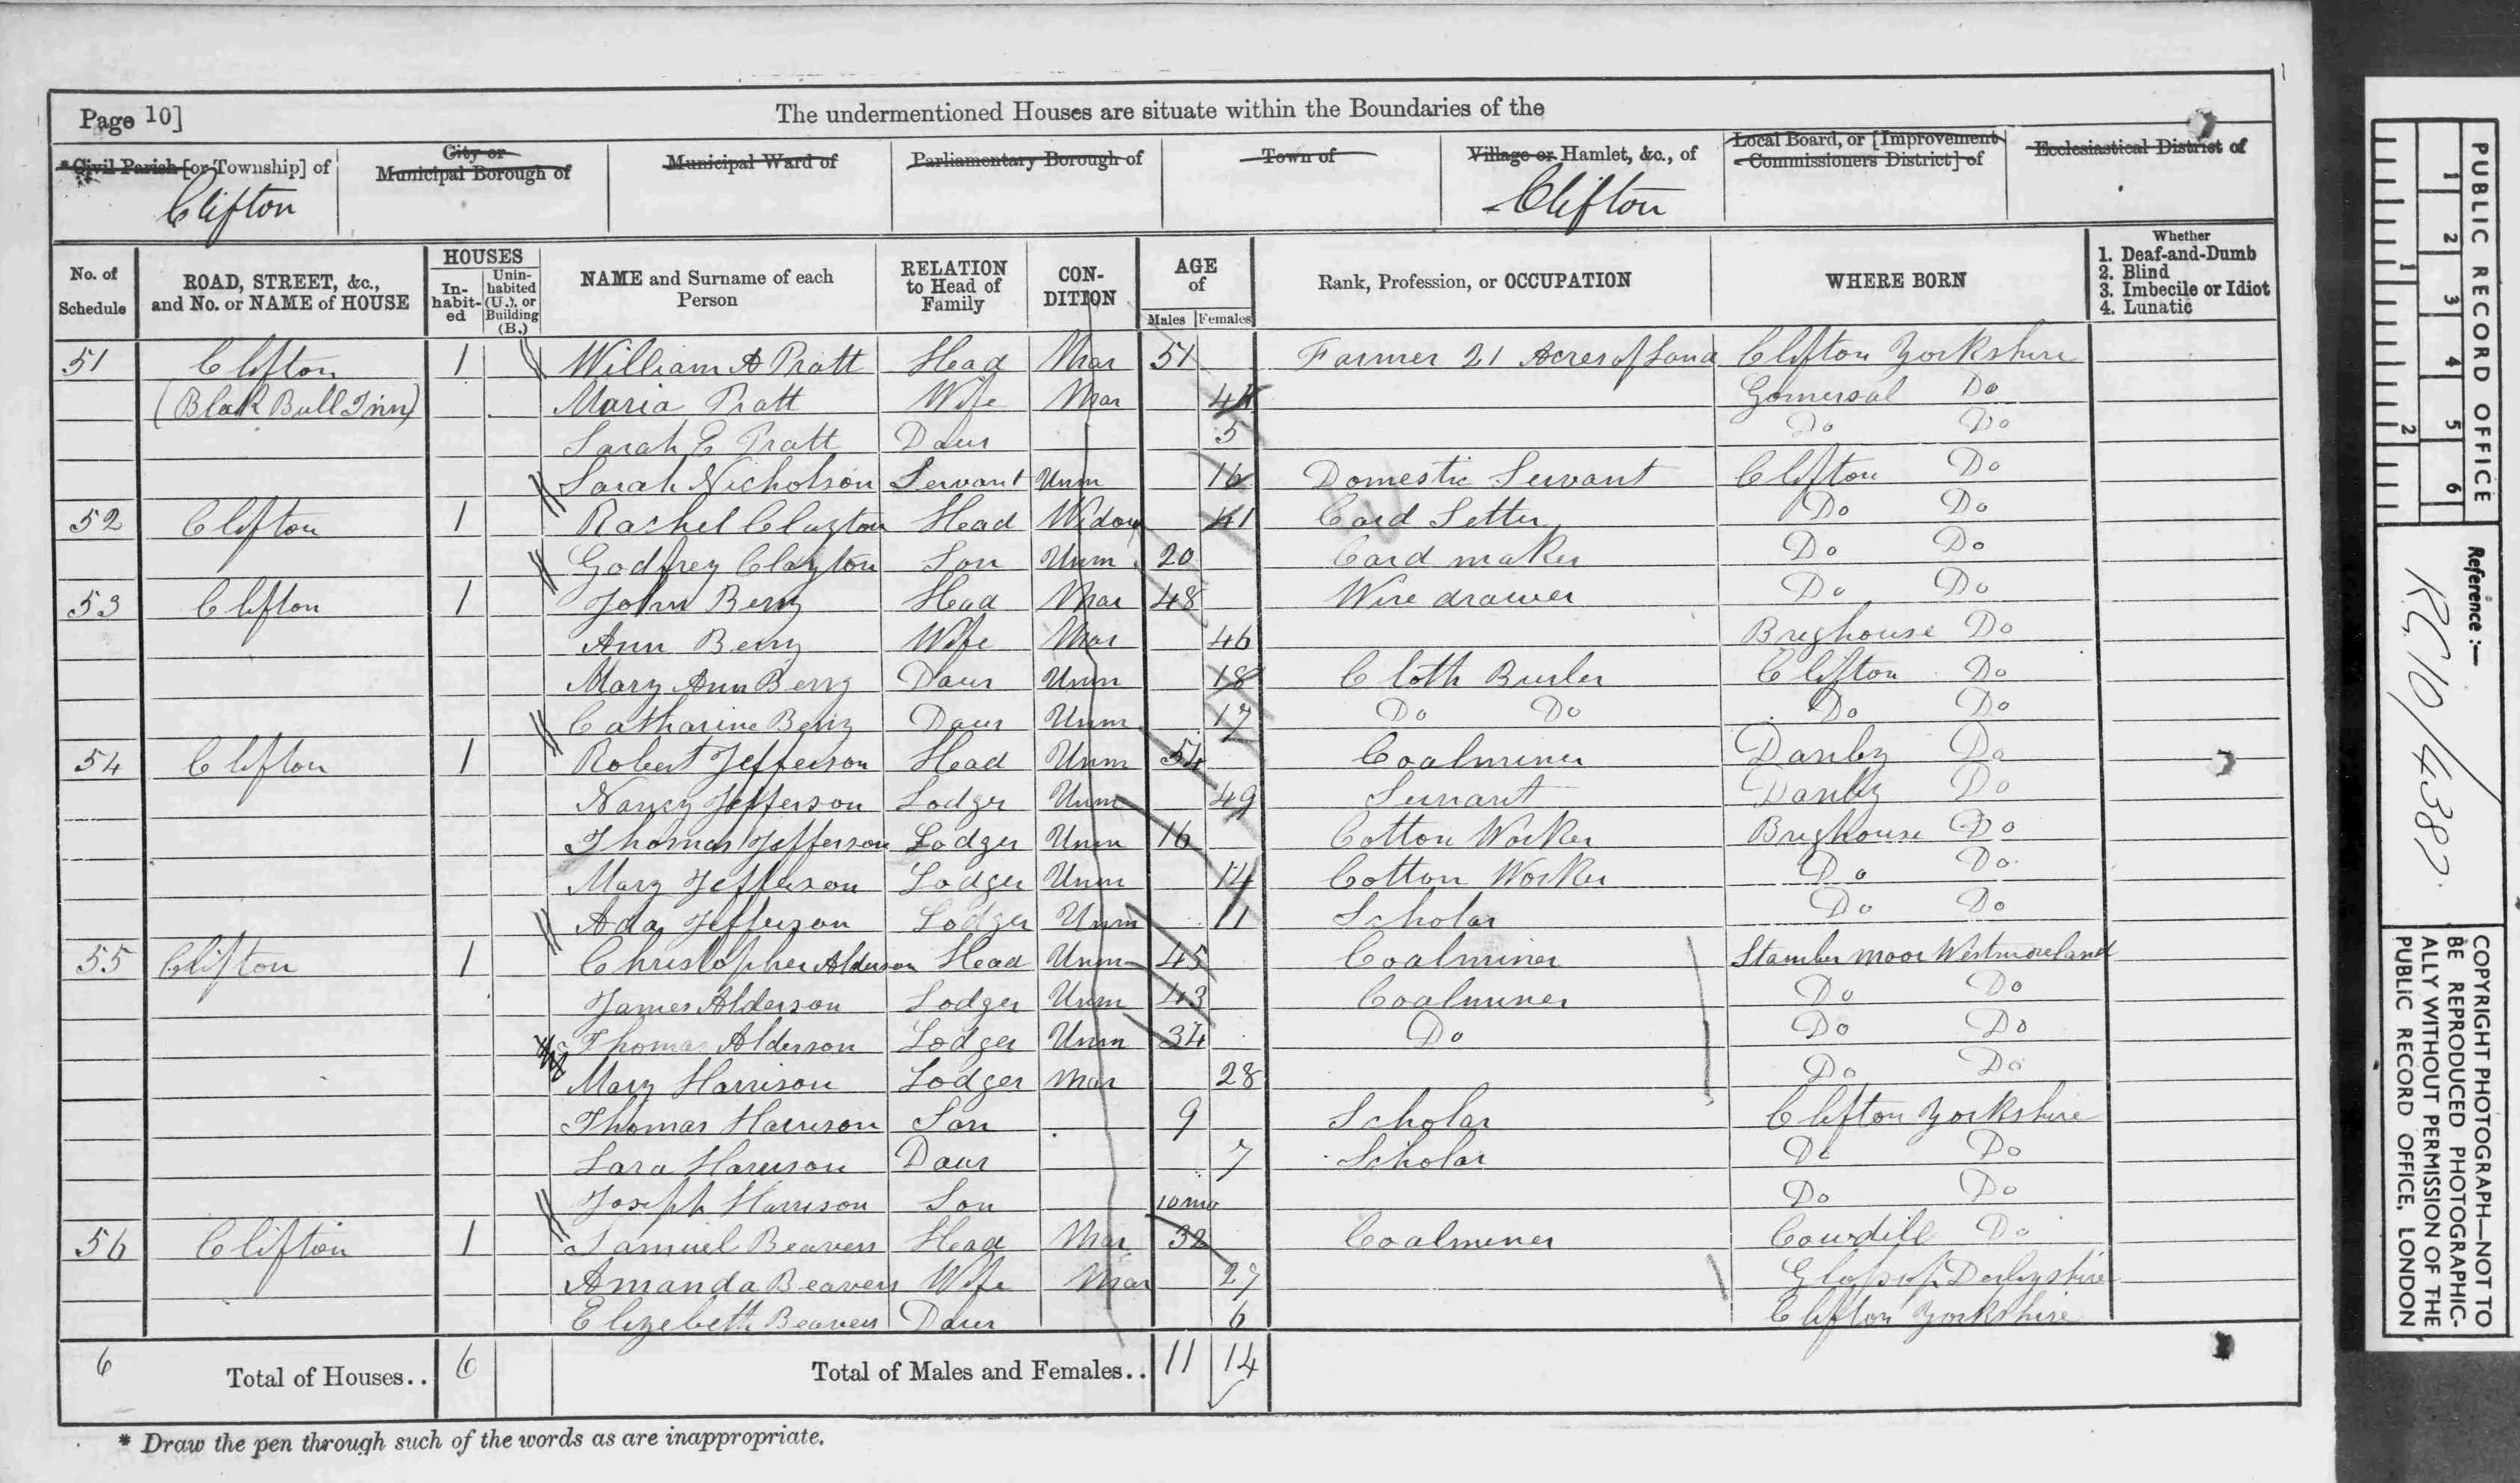 Page 10]
The undermentioned Houses are situate within the Boundaries of the
*Civil Parish [or Township] of
City or Municipal Borough of
Municipal Ward of
Parliamentary Borough of
Town of
Village or Hamlet, &c., of
Local Board, or [Improvement Commissioners District] of
Ecclesiastical District of
Clifton
Clifton
No. of Schedule
ROAD, STREET, &c., and No. or NAME of HOUSE
HOUSES
Inhabited
Uninhabited (U.), or Building (B.)
NAME and Surname of each Person
RELATION to Head of Family
CONDITION
AGE of
Males
Females
Rank, Profession, or OCCUPATION
WHERE BORN
Whether
1. Deaf-and-Dumb
2. Blind
3. Imbecile or Idiot
4. Lunatic
51 Clifton 1 William A Pratt Head Mar 51 Farmer 21 Acres of Land Clifton Yorkshire
(Black Bull Inn) Maria Pratt Wife Mar Gomersal Do
Sarah E Pratt Daur 5 Do Do
Sarah Nicholson Servant Unm 16 Domestic Servant Clifton Do
52 Clifton 1 Rachel Clayton Head Widow 41 Card Setter Do Do
Godfrey Clayton Son Unm 20 Card maker Do Do
53 Clifton 1 John Berry Head Mar 48 Wire drawer Do Do
Ann Berry Wife Mar 46 Brighouse Do
Mary Ann Berry Daur Unm 18 Cloth Burler Clifton Do
Catharine Berry Daur Unm 17 Do Do Do Do
54 Clifton 1 Robert Jefferson Head Unm 54 Coalminer Danby Do
Nancy Jefferson Lodger Unm 49 Servant Danby Do
Thomas Jefferson Lodger Unm 16 Cotton Worker Brighouse Do
Mary Jefferson Lodger Unm 14 Cotton Worker Do Do
Ada Jefferson Lodger Unm 11 Scholar Do Do
55 Clifton 1 Christopher Alderson Head Unm 45 Coalminer Stainber moor Westmoreland
James Alderson Lodger Unm 43 Coalminer Do Do
Thomas Alderson Lodger Unm 34 Do Do Do
Mary Harrison Lodger Mar 28 Do Do
Thomas Harrison Son 9 Scholar Clifton Yorkshire
Sara Harrison Daur 7 Scholar Do Do
Joseph Harrison Son 10 mo Do Do
56 Clifton 1 Samuel Beavers Head Mar 32 Coalminer Cowdill Do
Amanda Beavers Wife Mar 27 Glossop Derbyshire
Elizebeth Beavers Daur 6 Clifton Yorkshire
6 Total of Houses.. 6 Total of Males and Females.. 11 14
* Draw the pen through such of the words as are inappropriate.
PUBLIC RECORD OFFICE
1 2 3 4 5 6
1 2
Reference :—
RG 10/4387
COPYRIGHT PHOTOGRAPH—NOT TO
BE REPRODUCED PHOTOGRAPHIC-
ALLY WITHOUT PERMISSION OF THE
PUBLIC RECORD OFFICE, LONDON